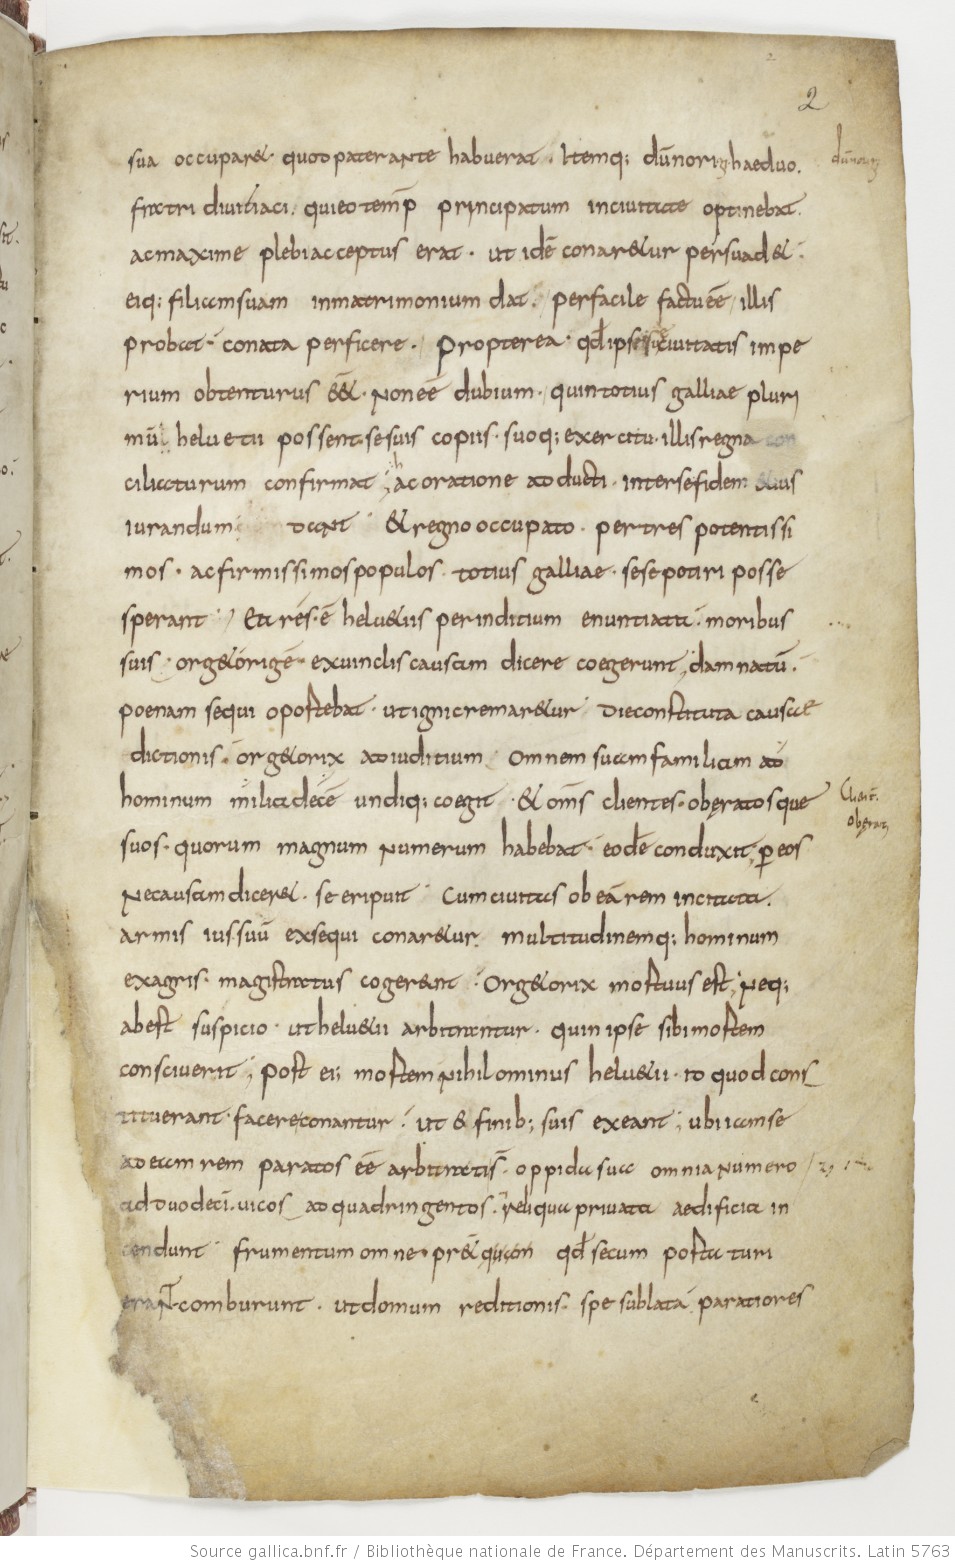 2
sua occupar&· quod pater ante habuerat. Itemq; dūnorigi haeduo.
dūnorig
fratri divitiaci. qui eo temp principatum in civitate optinebat.
ac maxime plebi acceptus erat. ut idē conar&ur persuad&.
eiq; filiam suam in matrimonium dat. perfacile factu eē illis
probat conata perficere. Propterea qđ ipse suae civitatis impe
rium obtenturus eēt. Non eē dubium. quin totius galliae pluri
mū helvetii possent. se suis copiis suoq; exercitu. illis regna con
ciliaturum confirmat; hac oratione adducti. inter se fidem & ius
iurandum dant & regno occupato. per tres potentissi
mos. ac firmissimos populos. totius galliae. sese potiri posse
sperant. Ea res. ē helv&iis per inditium enuntiata. moribus
suis. org&origē. ex vinclis causam dicere coegerunt; damnatū.
poenam sequi oportebat. ut igni cremar&ur. Die constituta causae
dictionis. org&orix ad iuditium. Omnem suam familiam ad
hominum milia decē undiq; coegit. & oms clientes. obęratosque
Client.
obęrat
suos. quorum magnum numerum habebat. eodē conduxit; ꝑ eos
Ne causam dicer&. se eripuit. Cum civitas ob eā rem incitata.
armis ius suū exsequi conar&ur. multitudinemq; hominum
ex agris. magistratus cogerent. Org&orix mortuus est; Neq;
abest suspicio. ut helv&ii arbitrantur. quin ipse sibi mortem
consciverit; post ei; mortem nihilominus helv&ii. id quod cons
tituerant. facere conantur. Ut & finib; suis exeant; ubi iam se
ad eam rem paratos eē arbitratis. oppida sua omnia numero
ad duodecī. vicos ad quadringentos. reliqua privata aedificia in
cendunt. frumentum omne. pr& quam qđ secum porta turi
erant. comburunt. ut domum reditionis. spe sublata. paratiores
Source gallica.bnf.fr / Bibliothèque nationale de France. Département des Manuscrits. Latin 5763